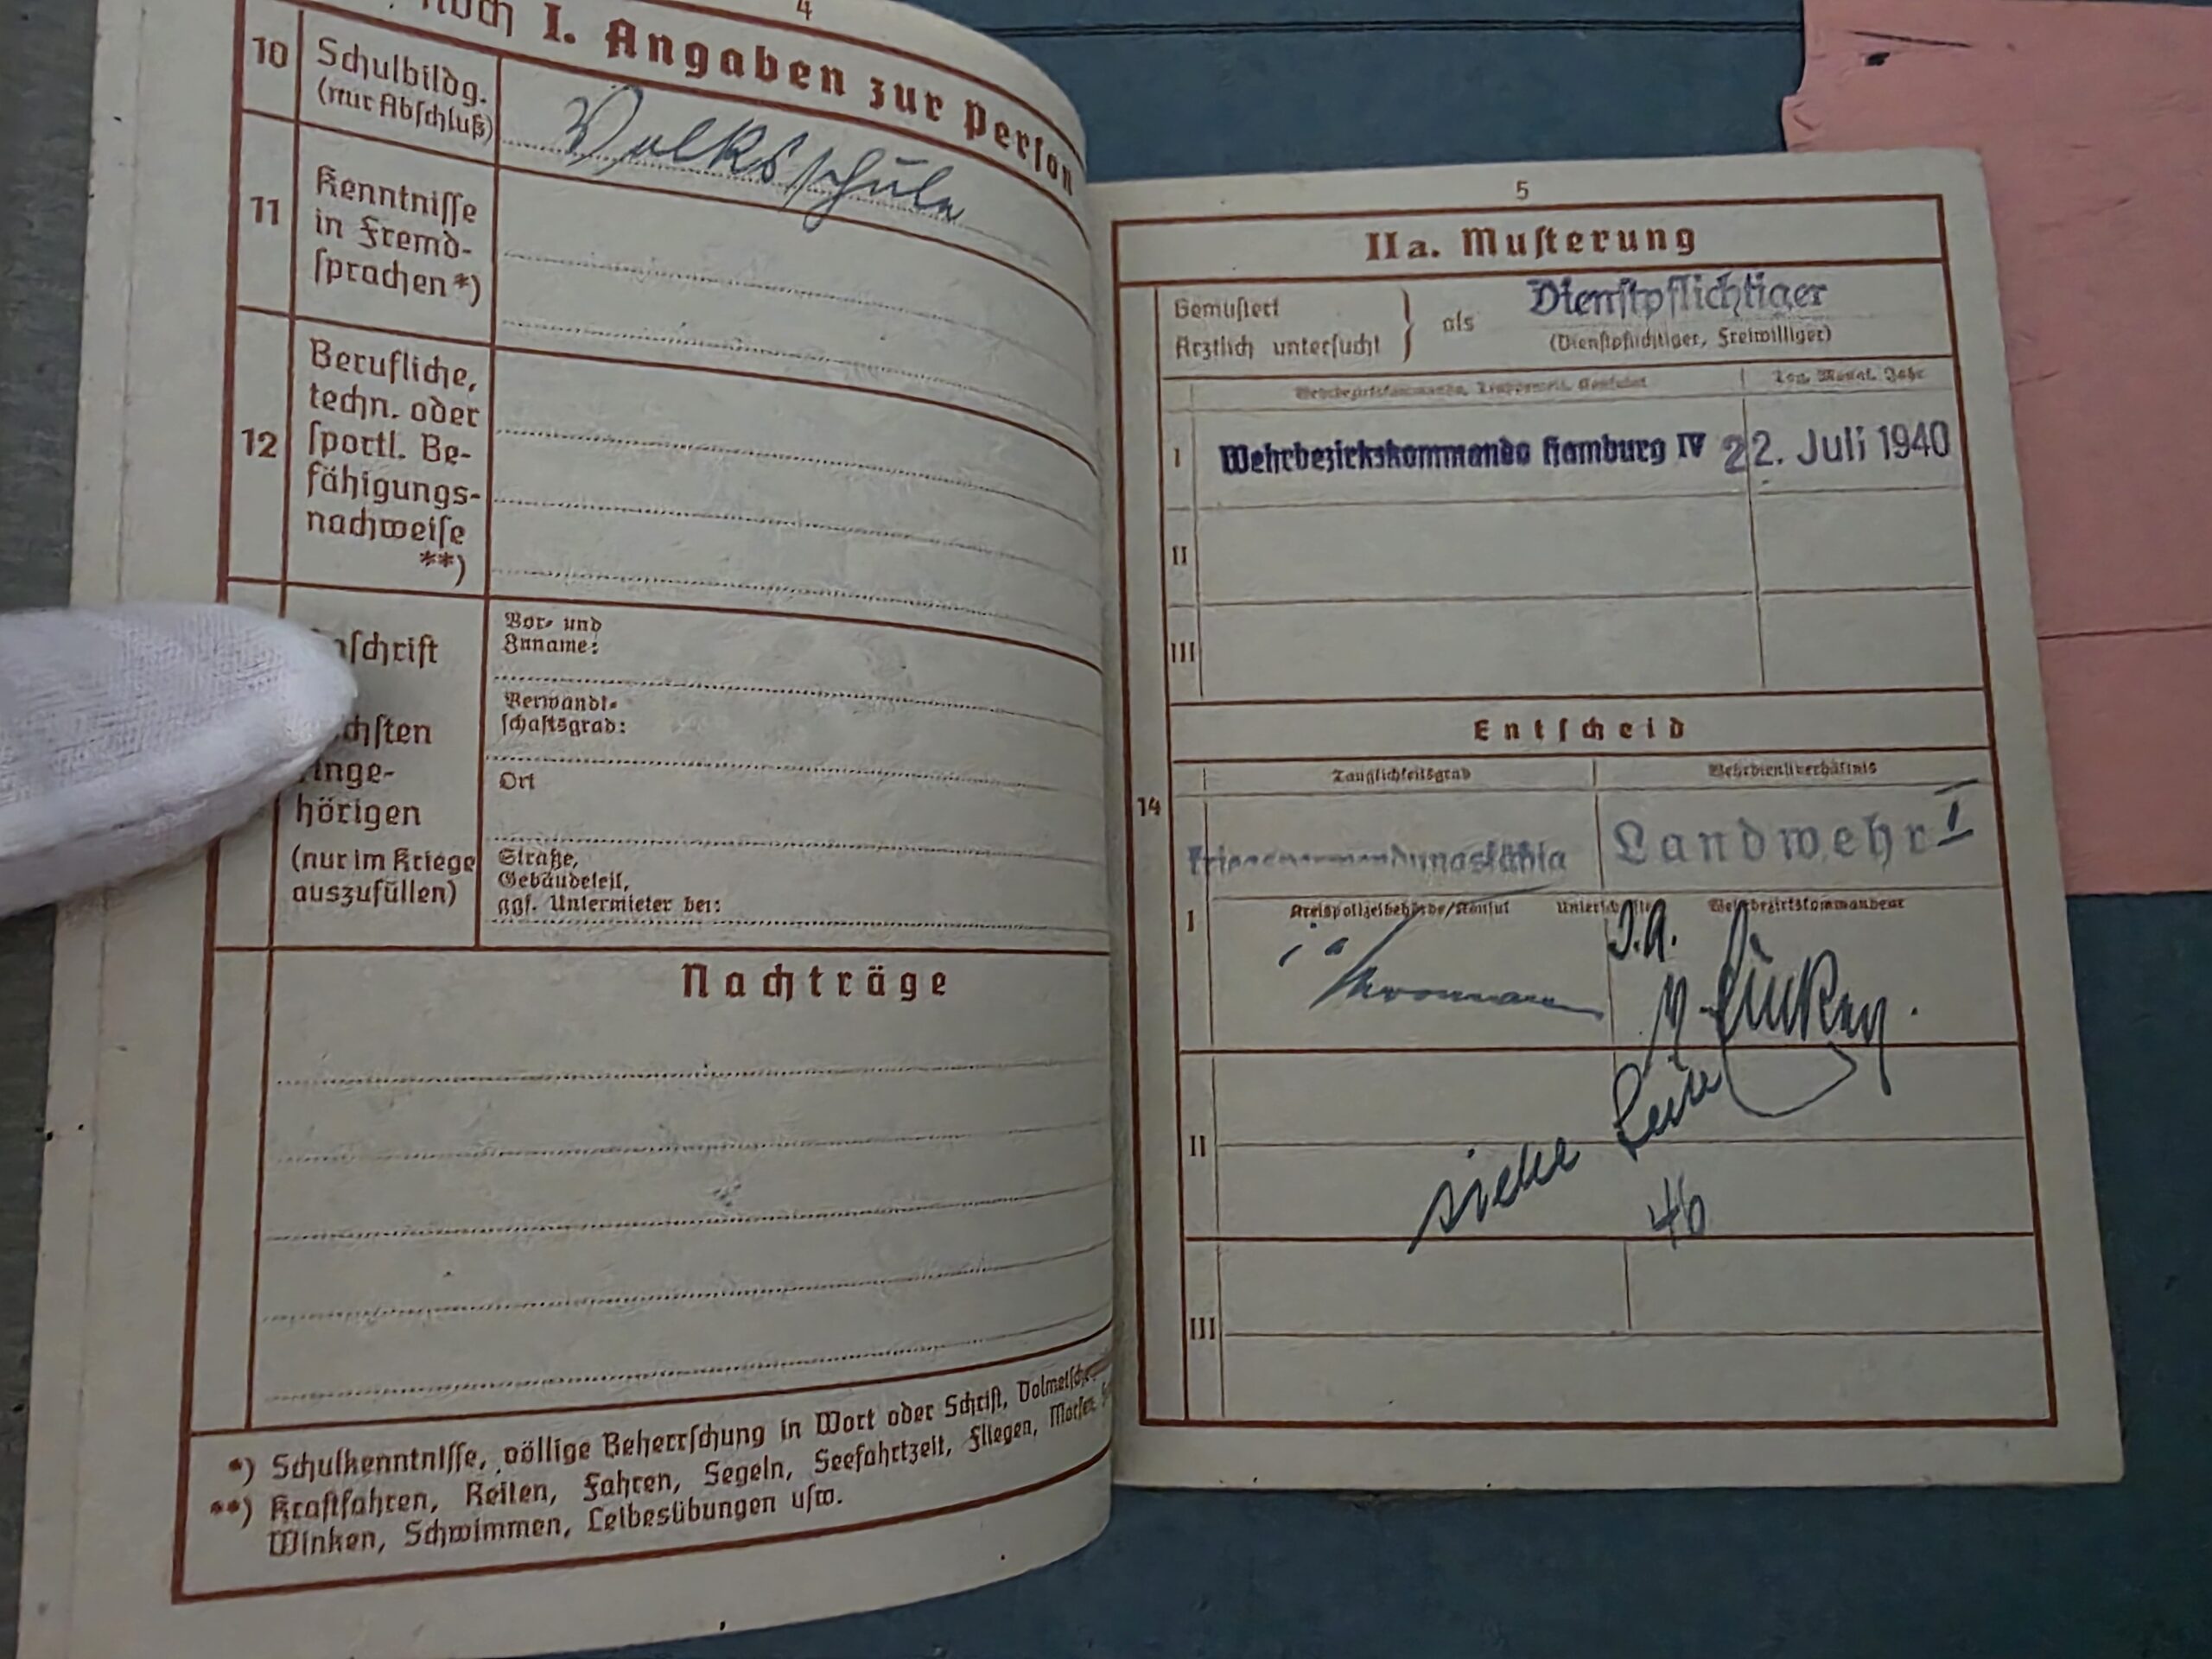 4
noch I. Angaben zur Person
10 Schulbildg.
(nur Abschluß)
Volksschule
11 Kenntnisse
in Fremd-
sprachen*)
12 Berufliche,
techn. oder
sportl. Be-
fähigungs-
nachweise
**)
schrift
chsten
Ange-
hörigen
(nur im Kriege
auszufüllen)
Vor- und
Zuname:
Verwandt-
schaftsgrad:
Ort
Straße,
Gebäudeteil,
ggf. Untermieter bei:
Nachträge
*) Schulkenntnisse, völlige Beherrschung in Wort oder Schrift,
**) Kraftfahren, Reiten, Fahren, Segeln, Seefahrtzeit, Fliegen,
Winken, Schwimmen, Leibesübungen usw.
5
IIa. Musterung
Gemustert
Ärztlich untersucht } als Dienstpflichtiger
(Dienstpflichtiger, Freiwilliger)
Wehrbezirkskommando, Truppenteil, Konsulat Tag, Monat, Jahr
I Wehrbezirkskommando Hamburg IV 22. Juli 1940
II
III
Entscheid
Tauglichkeitsgrad Wehrdienstverhältnis
14
Landwehr I
I
Kreispolizeibehörde/Konsul Unterschriften Wehrbezirkskommandeur
J.A.
II
siehe Seite
46
III